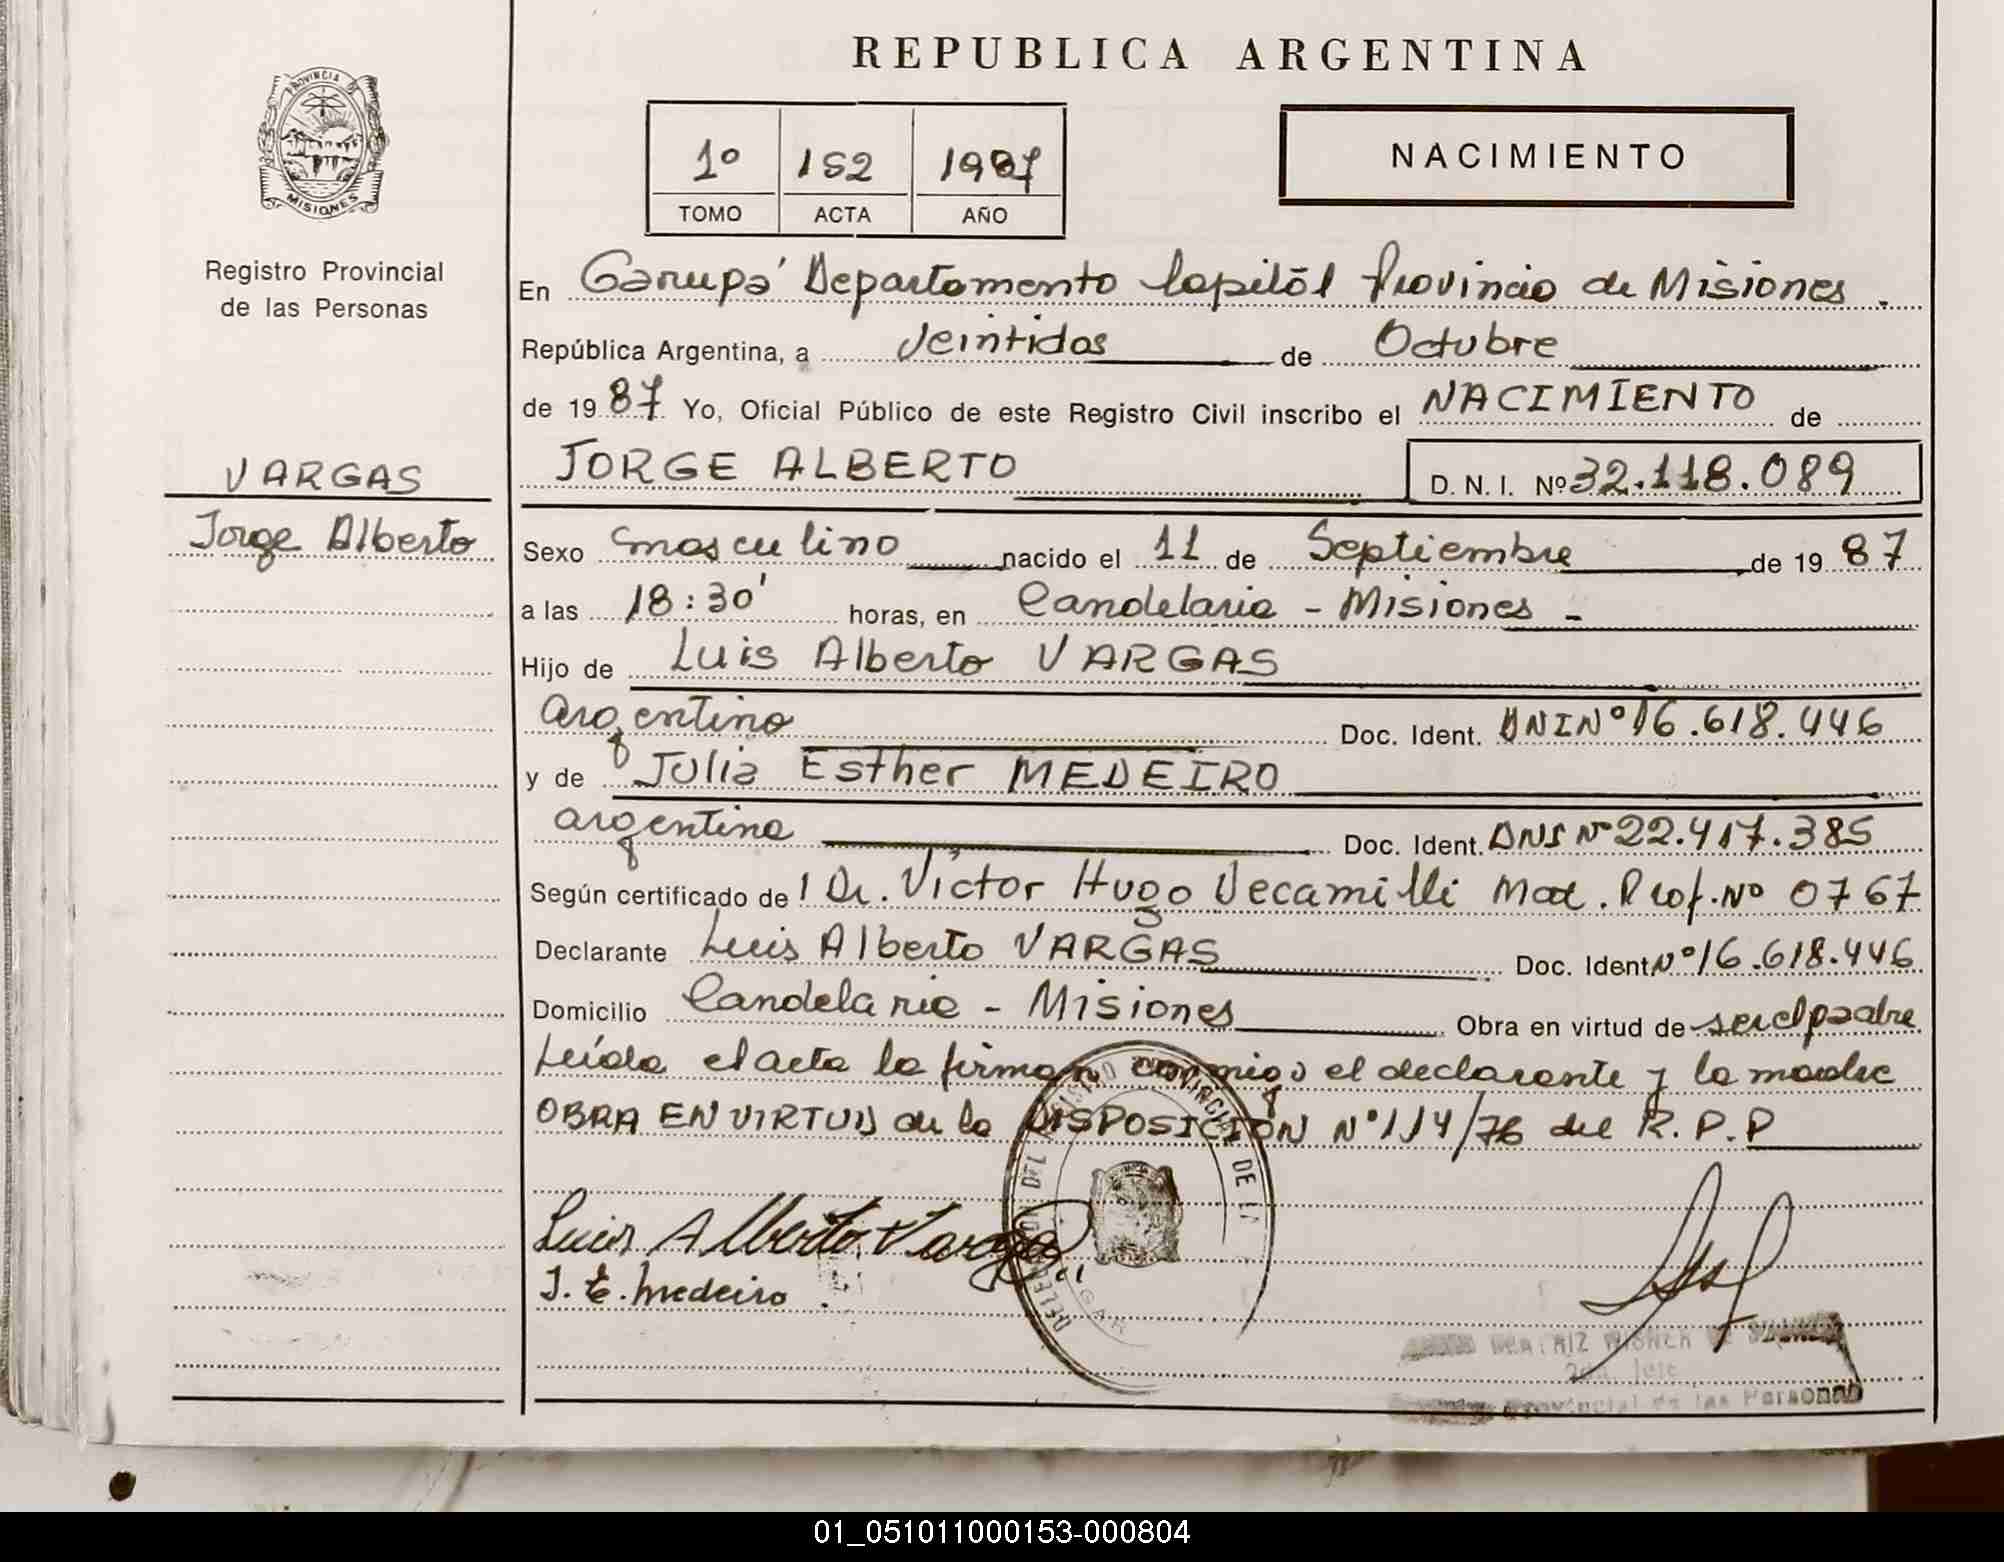 REPUBLICA ARGENTINA
PROVINCIA DE MISIONES
1º 152 1987
TOMO ACTA AÑO
NACIMIENTO
Registro Provincial
de las Personas
En Garupá Departamento Capital Provincia de Misiones.
República Argentina, a Veintidos de Octubre
de 1987 Yo, Oficial Público de este Registro Civil inscribo el NACIMIENTO de
VARGAS
JORGE ALBERTO D. N. I. Nº 32.118.089
Jorge Alberto
Sexo masculino nacido el 11 de Septiembre de 1987
a las 18:30' horas, en Candelaria - Misiones -
Hijo de Luis Alberto VARGAS
argentino Doc. Ident. DNI Nº 16.618.446
y de Julia Esther MEDEIRO
argentina Doc. Ident. DNI Nº 22.417.385
Según certificado de l Dr. Víctor Hugo Decamilli Mat. Prof. Nº 0767
Declarante Luis Alberto VARGAS Doc. Ident Nº 16.618.446
Domicilio Candelaria - Misiones Obra en virtud de ser el padre
Leída el acta la firman conmigo el declarante y la madre
OBRA EN VIRTUD de la DISPOSICIÓN Nº 114/76 del R.P.P
Luis Alberto Vargas
J. E. Medeiro
BEATRIZ
Provincial de las Personas
01_051011000153-000804